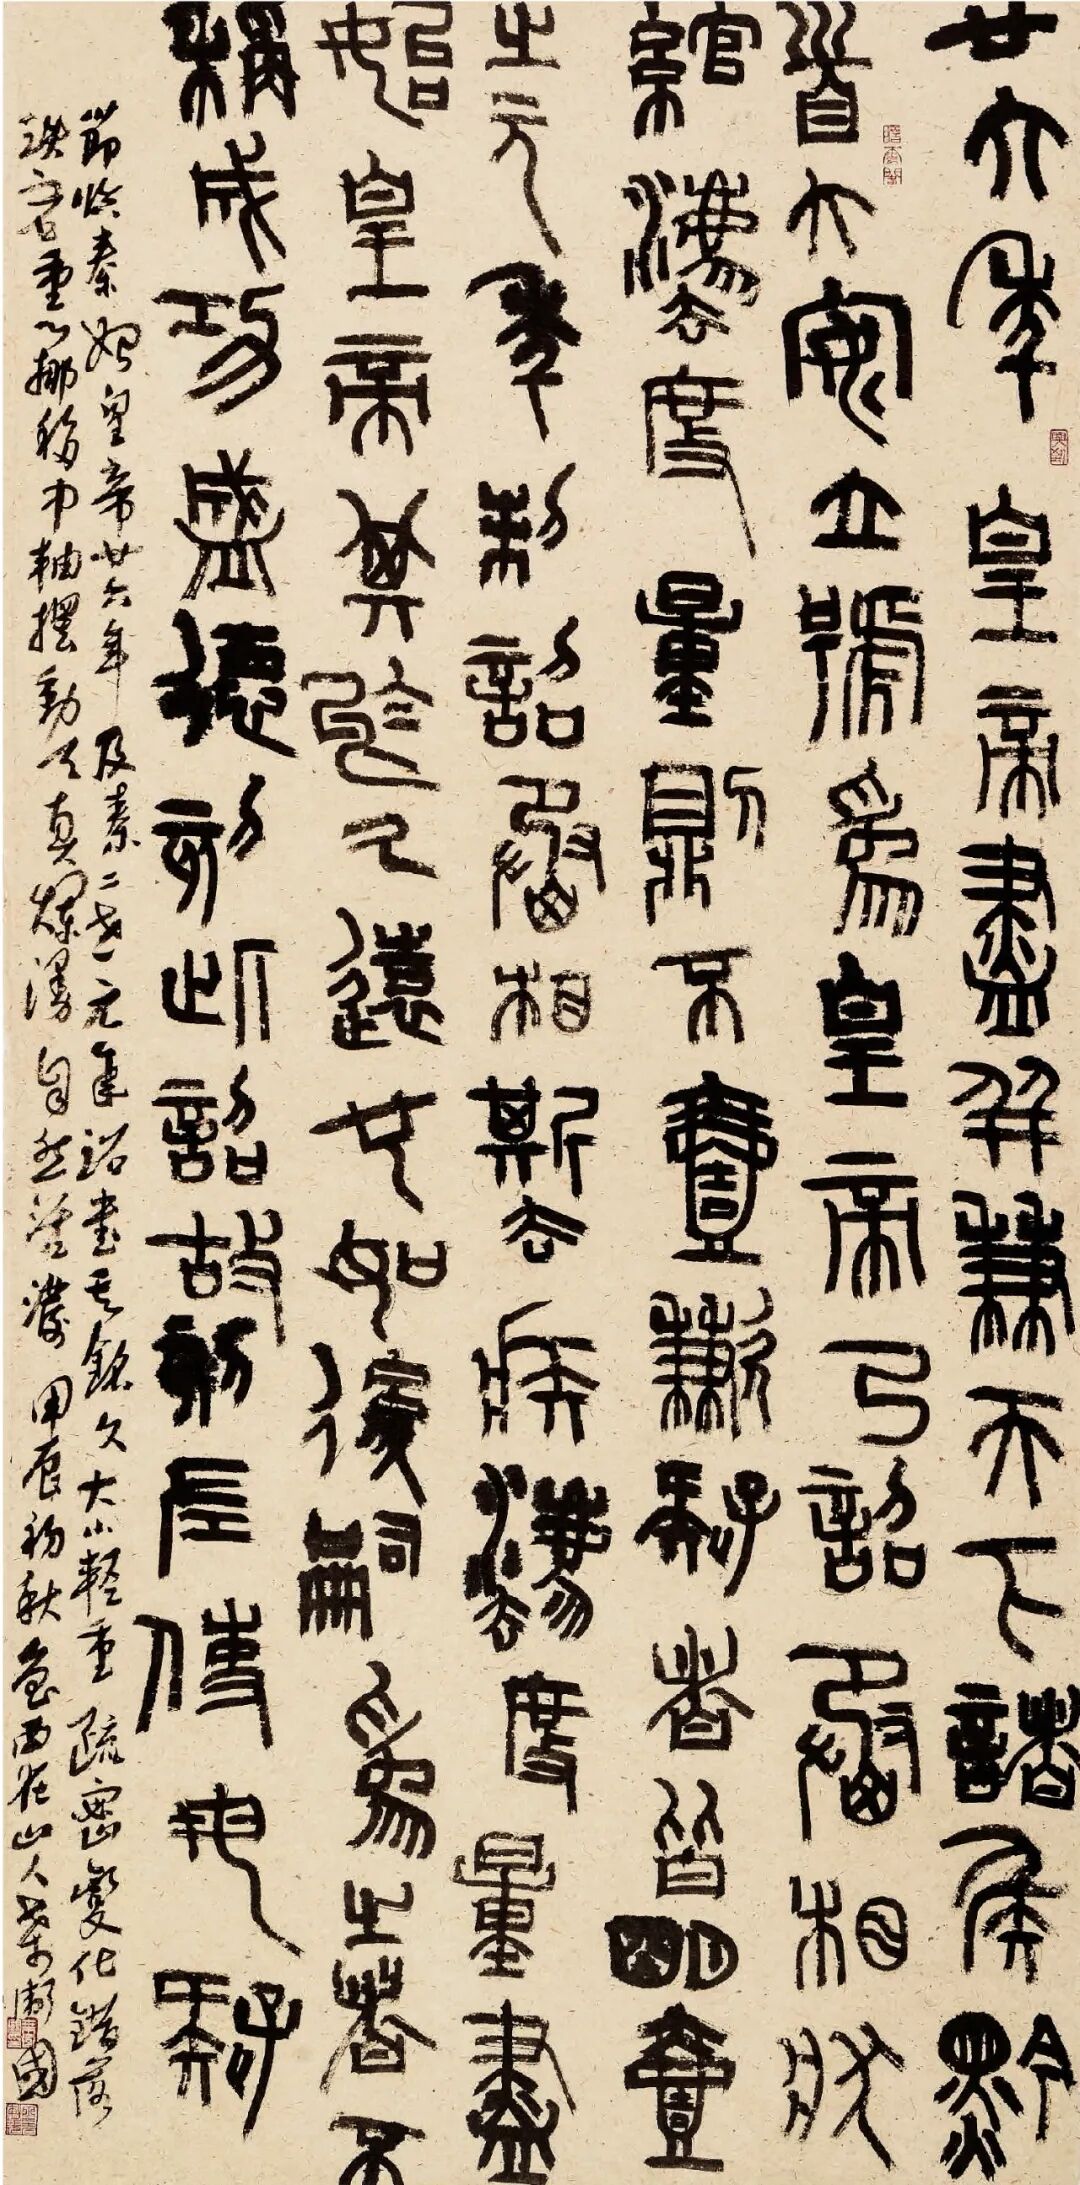 廿六年皇帝盡并兼天下諸侯黔
首大安立號爲皇帝乃詔丞相狀
綰灋度量則不壹歉疑者皆明壹
之元年制詔丞相斯去疾灋度量盡
始皇帝其於久遠也如後嗣爲之者不
稱成功盛德刻此詔故刻左使毋疑
節臨秦始皇帝廿六年及秦二世元年詔書其銘文大小輕重疏密變化錯落
跌宕重心挪移中軸擺動天真爛漫自然 甲辰初秋魯西在山人衛國